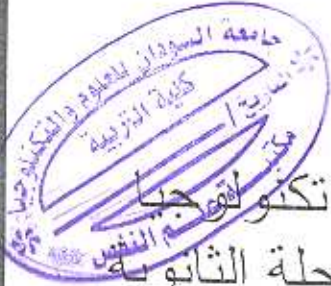 جامعة السودان للعلوم والتكنولوجيا
كلية التربية
التاريخ /
علم النفس
تكنولوجيا
حلة الثانوية